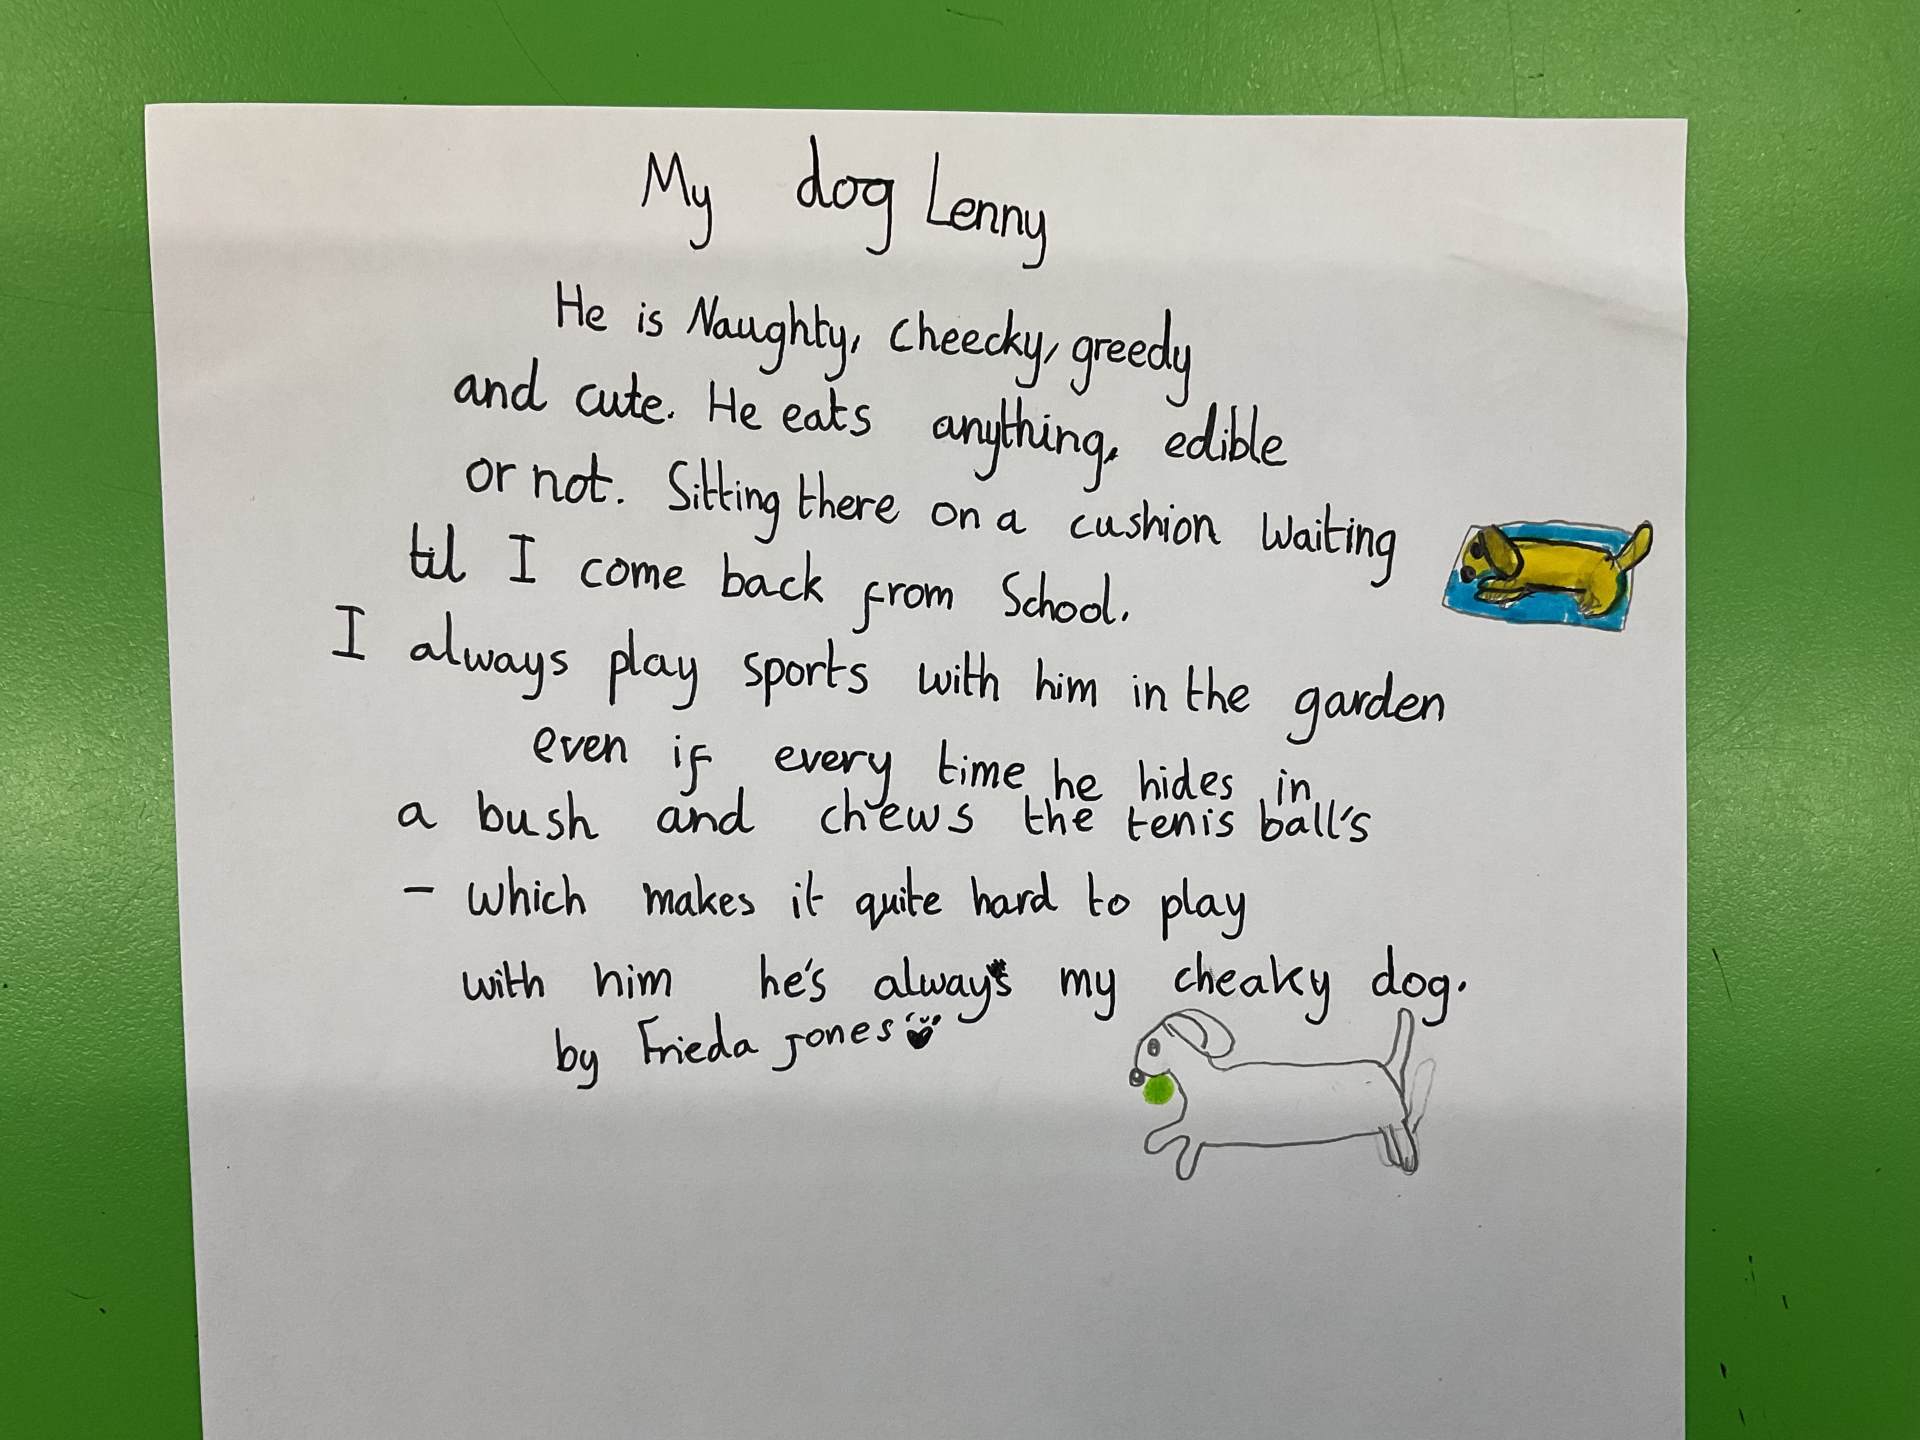 My dog Lenny
He is Naughty, cheecky, greedy
and cute. He eats anything, edible
or not. Sitting there on a cushion waiting
til I come back from School.
I always play sports with him in the garden
even if every time he hides in
a bush and chews the tenis ball's
- which makes it quite hard to play
with him he's always my cheaky dog.
by Frieda Jones